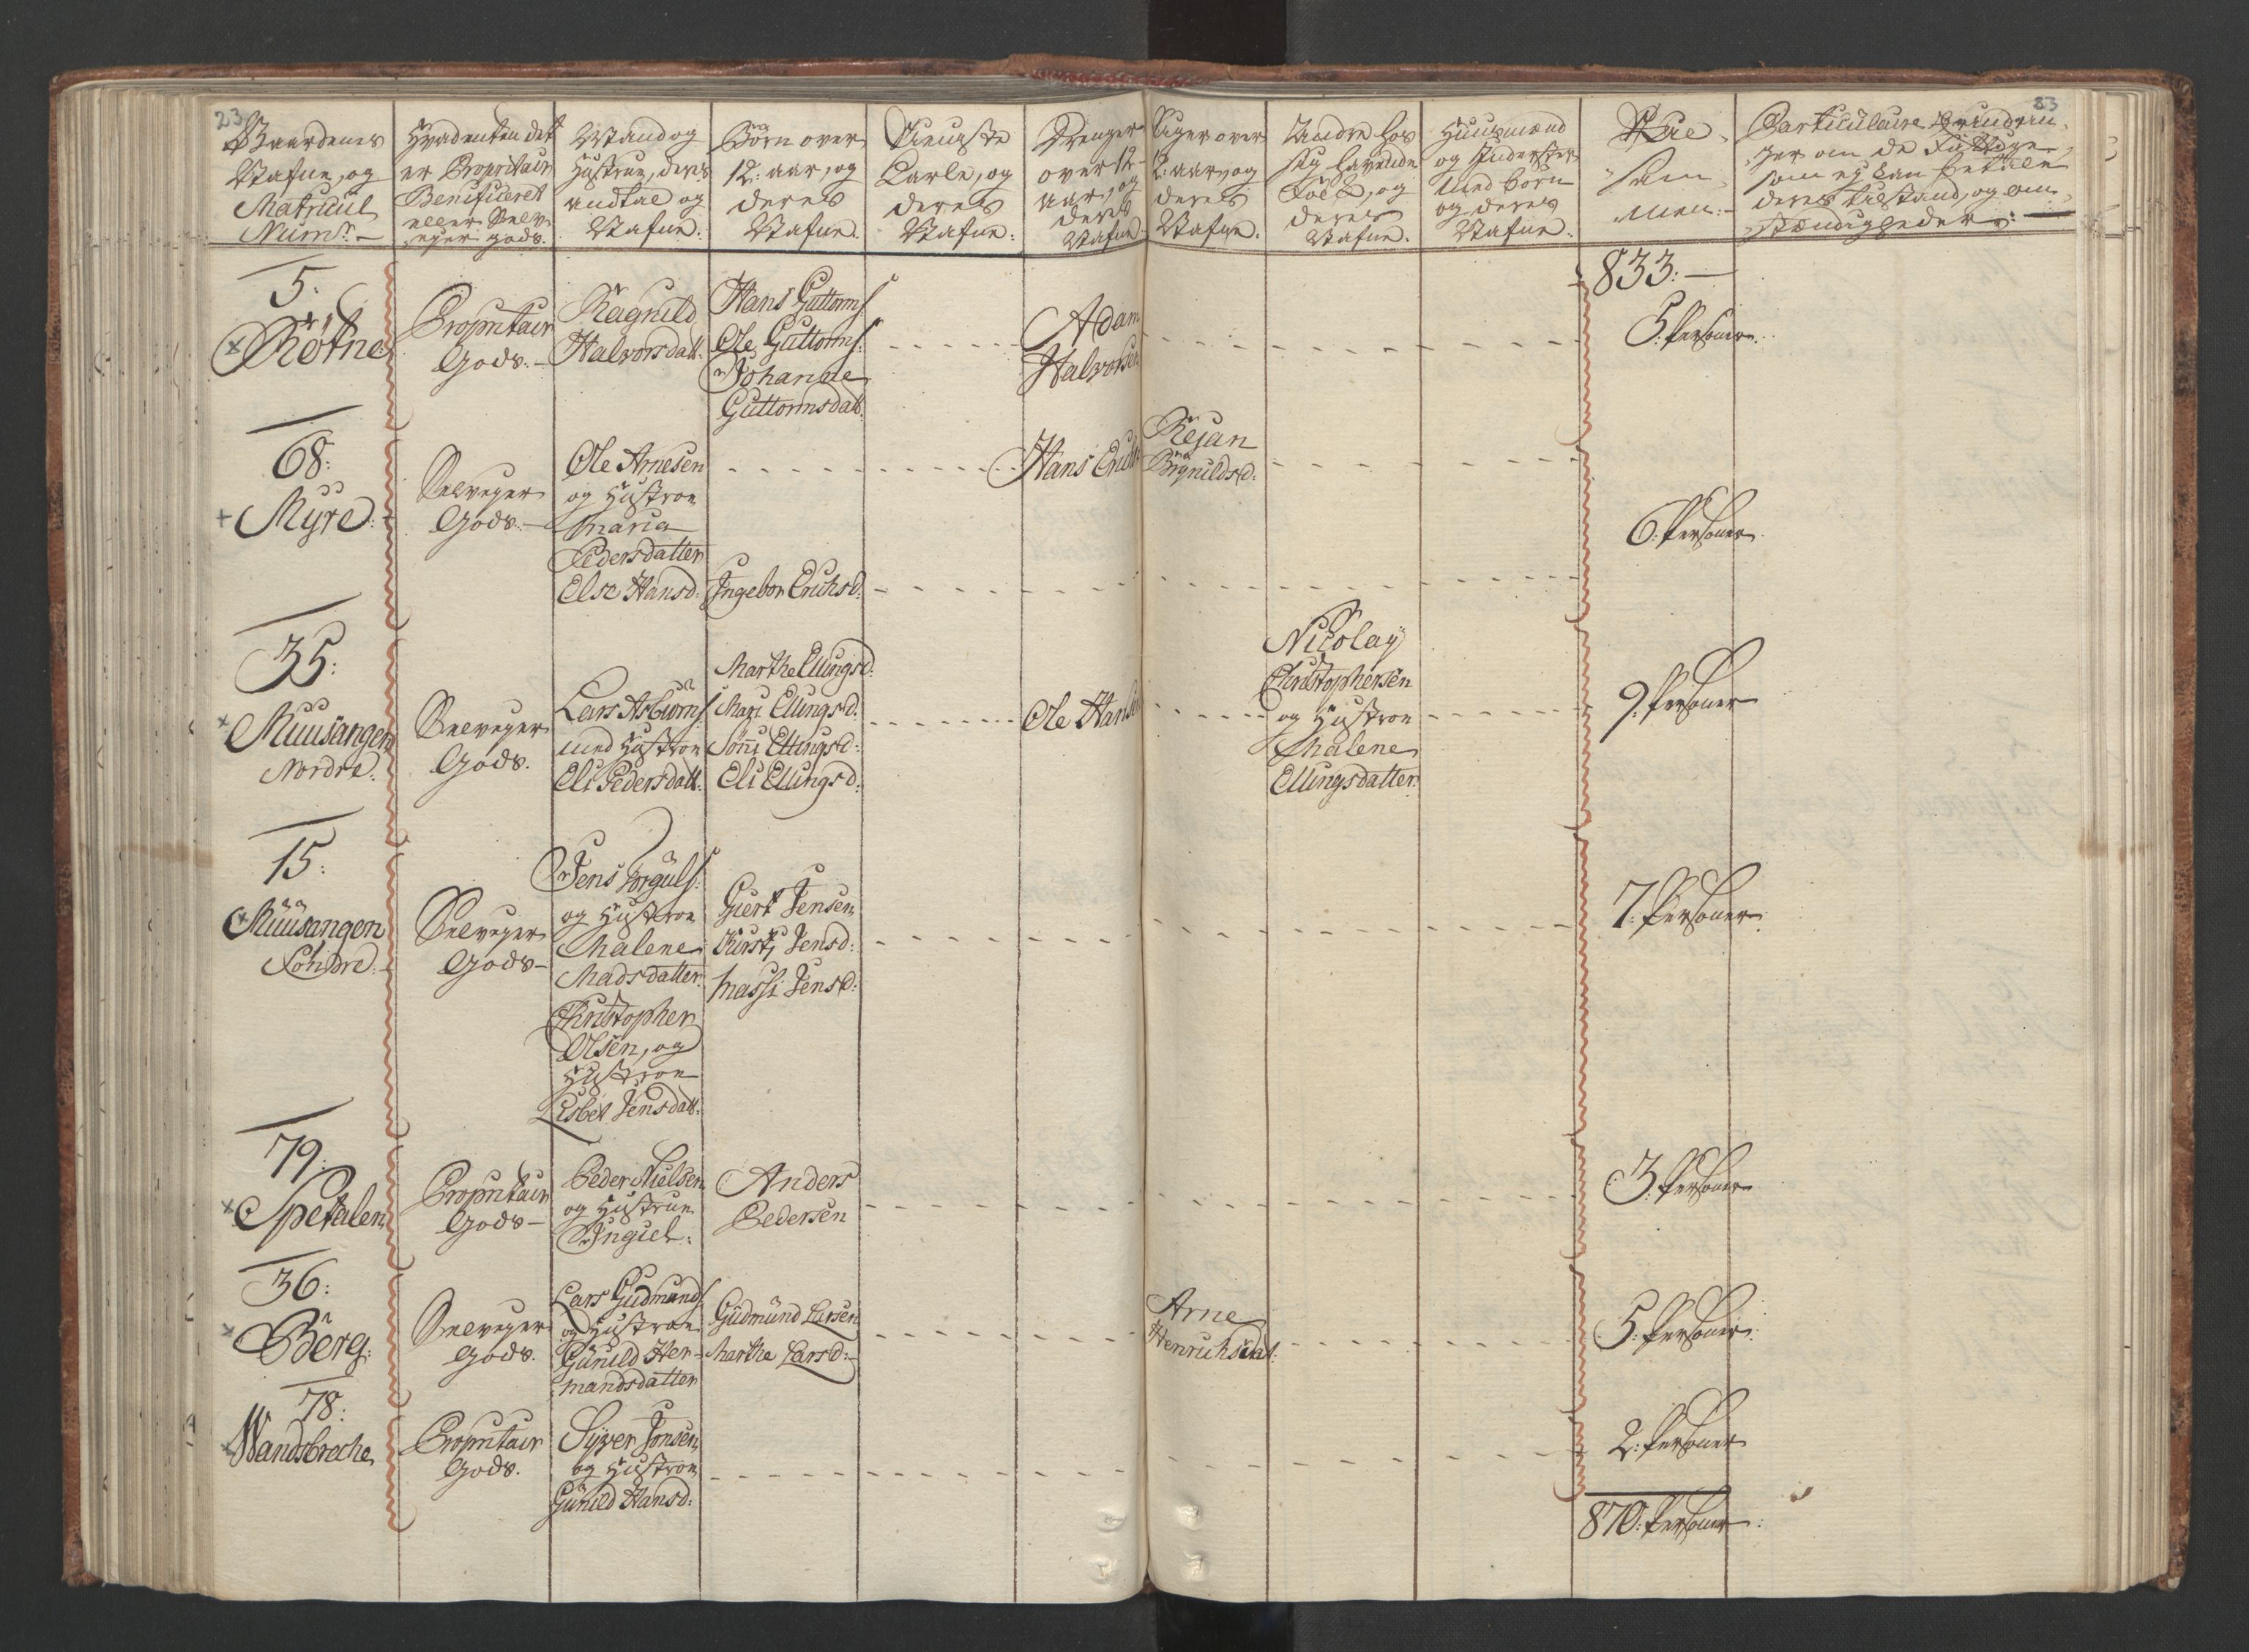 23
83
Gaardenes
Nafne, og
Matricul
Num:r
Hvadenten det
er Propritair
Beneficeret
eller Selv-
eyer gods.
Mand og
Hustrue, deres
andtal og
Nafne.
Børn over
12: aar, og
deres
Nafne.
Tieneste
Karle, og
deres
Nafne:
Drenger
over 12
aar, og
deres
Nafne
Piger over
12: aar, og
deres
Nafne.
Andre hos
sig havende
Folk, og
deres
Nafne.
Huusmænd
og Inderster
med børn
og deres
Nafne:
Til-
sam-
men:
Particulaire
om de Fattige
som ej kan betale
deres tilstand, og om-
stændigheder:
833:
5:
Røtne
Propritair
Gods.
Ragnild
Halvorsdatt:
Hans Guttorms:
Ole Guttorms:
Johanne
Guttormsdatt.
Adam
Halvorsen
5: Personer.
68:
Myre:
Selveyer
Gods.
Ole Arnesen
og Hustroe
Maria
Pedersdatter
Else Hansd:
Ingebor Erichsd:
Hans Erichs
Rejan
Brynildsd:
6: Personer
35:
Muusangen
Nordre.
Selveyer
Gods.
Lars Asbiørns:
med Hustroe
Eli Pedersdatt.
Marthe Ellingsd:
Mari Ellingsd:
Sønni Ellingsd:
Eli Ellingsd:
Ole Hansen
Nicolay
Christophersen
og Hustroe
Malene
Ellingsdatter.
9: Personer
15:
Muusangen
Søndre.
Selveyer
Gods
Jens Torguls:
og Hustroe
Malene
Madsdatter.
Christopher
Olsen, og
Hustroe
Lisbet Jensdatt.
Giert Jensen
Kirsti Jensd:
Massi Jensd:
7: Personer.
79:
Spetalen
Propritair
Gods
Peder Nielsen
og Hustrue
Ingiel:
Anders
Pedersen
3: Personer
36:
Berg:
Selveyer
Gods.
Lars Gudmunds:
og Hustroe
Gunild Her-
mandsdatter
Gudmund Larsen
Marthe Larsd:
Arne
Henrichsdat:
5: Personer.
78:
Wandsbreche
Propritair
Gods.
Syver Jonsen
og Hustroe
Gunild Hansd:
2: Personer
870: Personer: